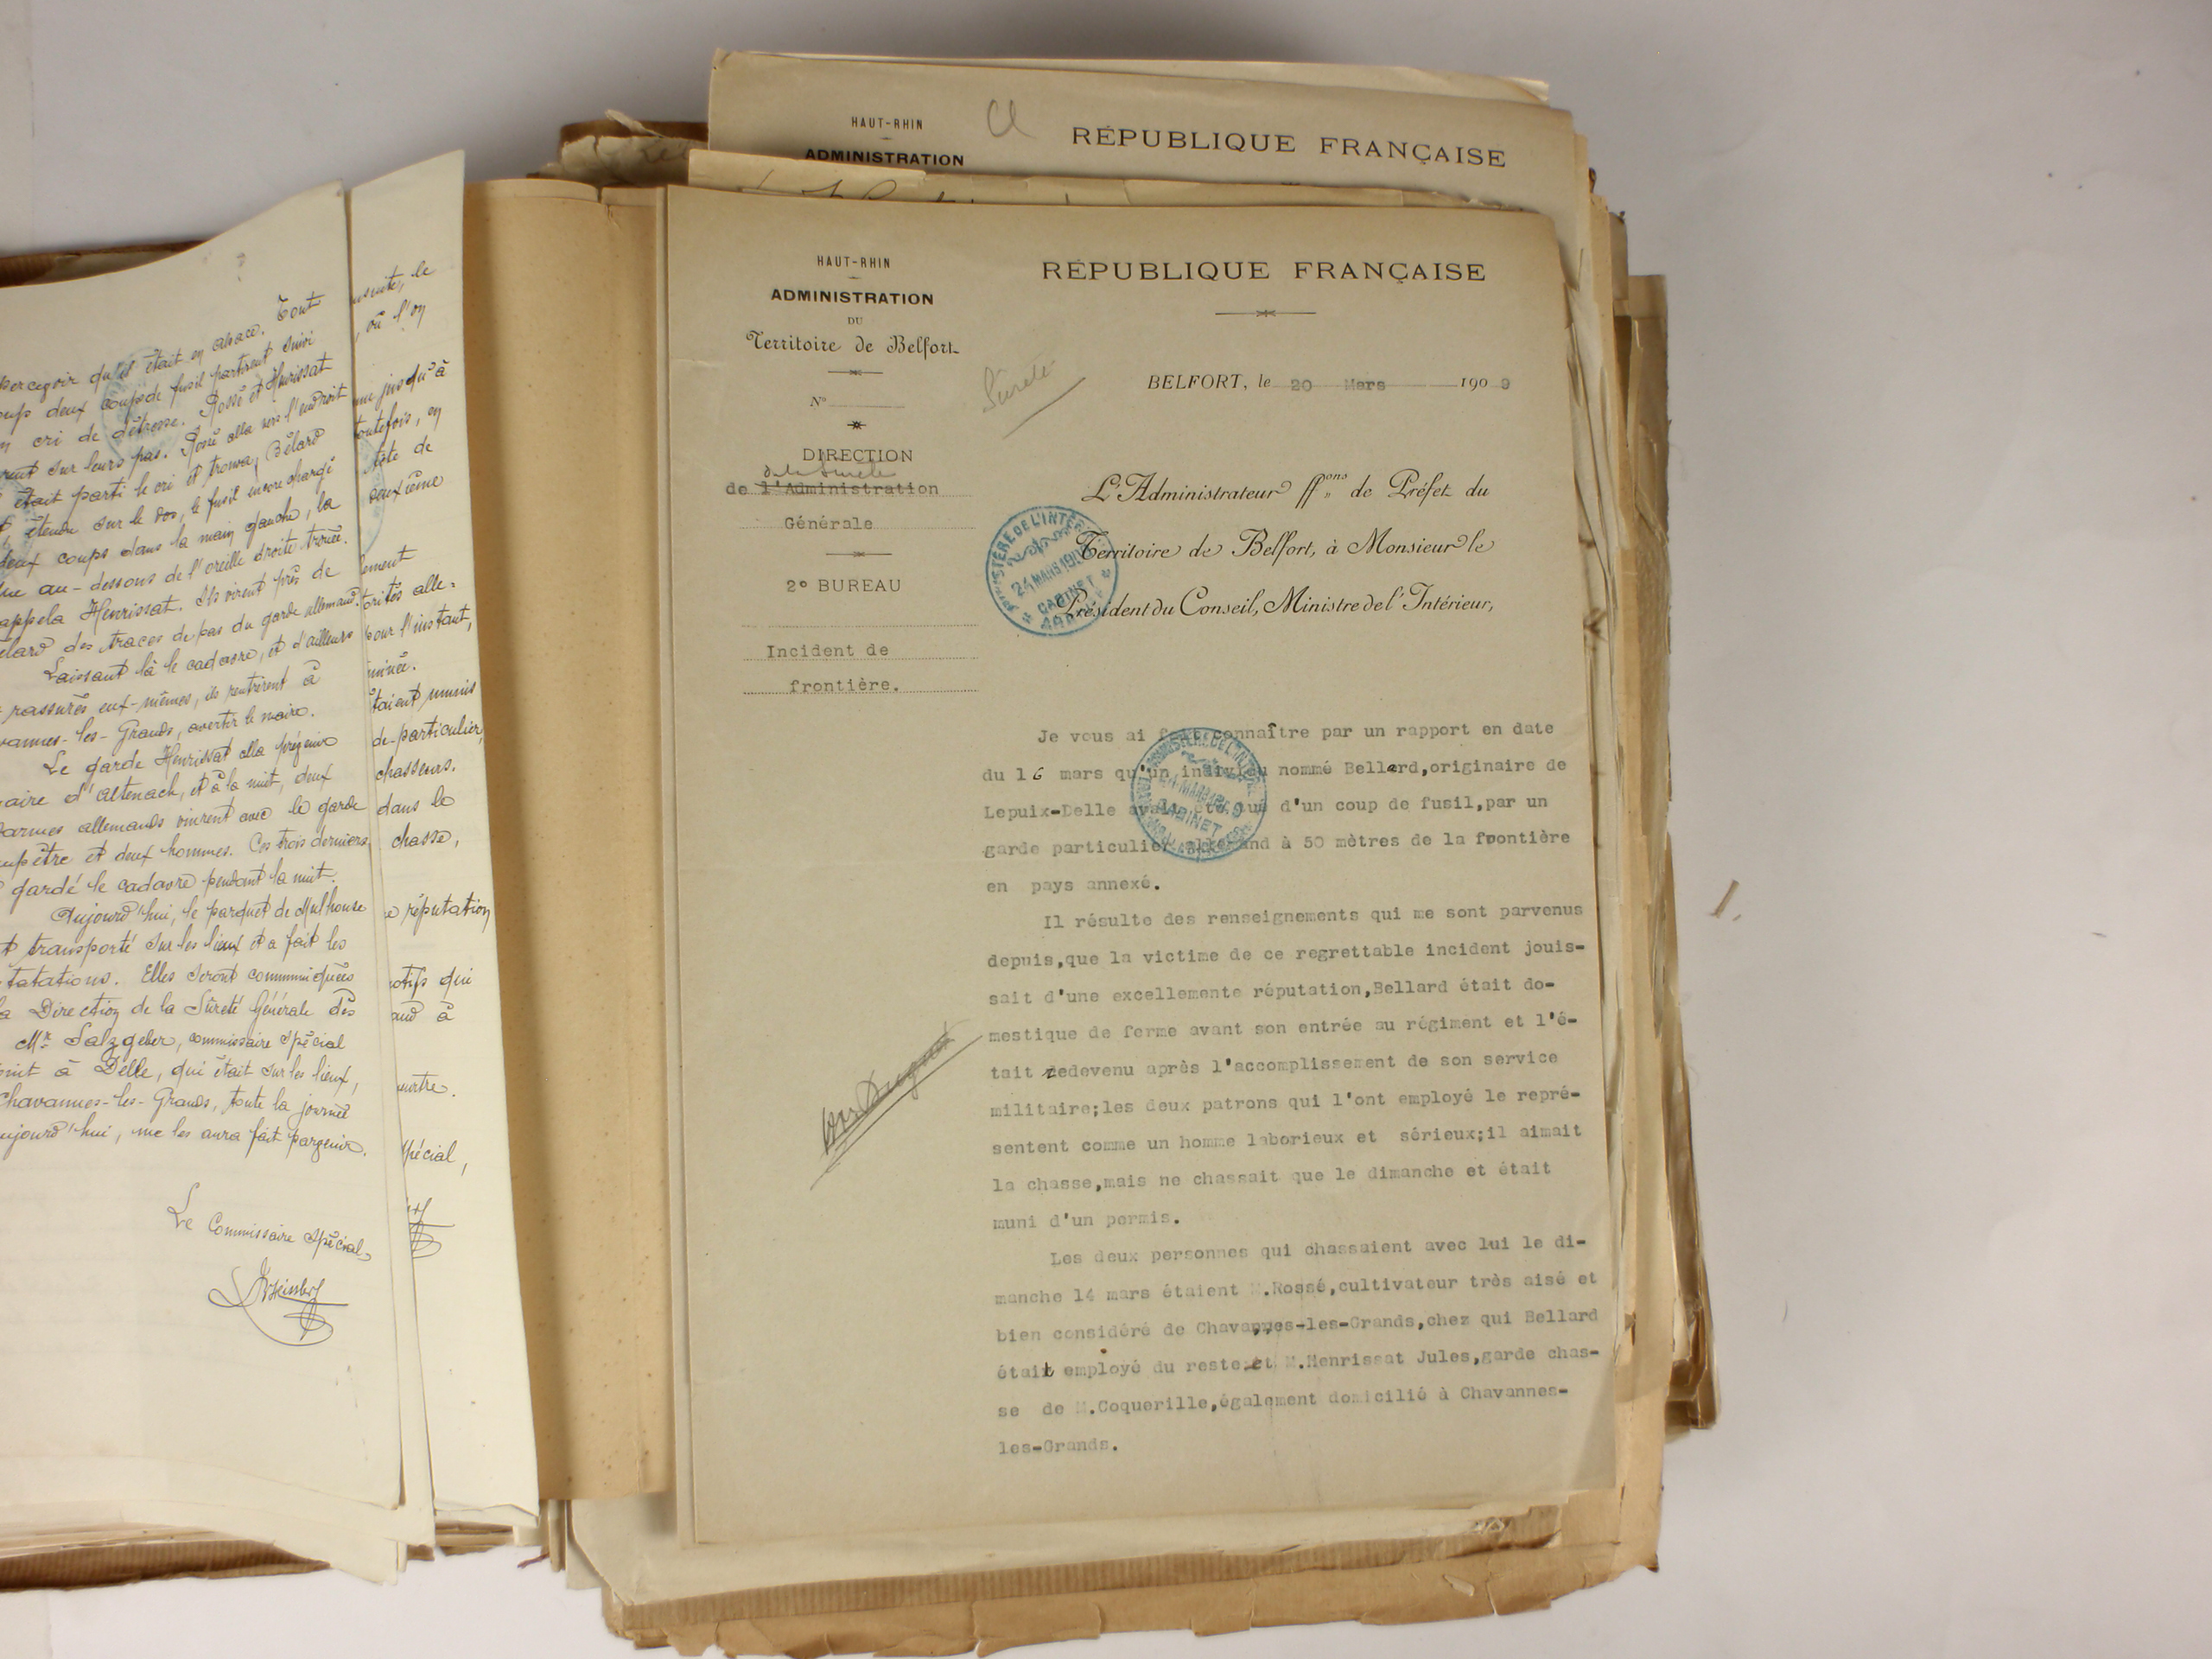 percevoir qu'il était en alsace. Tout
coup deux coups de fusil partirent suivi
un cri de détresse. Rossé et Henrissat
rent sur leurs pas. Rossé alla vers l'endroit
était parti le cri et trouva, Bélard
étendu sur le dos, le fusil encore chargé
deux coups dans la main gauche, la
au-dessous de l'oreille droite trouée.
appela Henrissat. Ils virent près de
élard des traces de pas du garde allemand.
Laissant là le cadavre, et d'ailleurs
rassurés eux-mêmes, ils rentrèrent à
vannes-les-Grands, avertir le maire.
Le garde Henrissat alla prévenir
maire d'Altenach, et à la nuit, deux
darmes allemands vinrent avec le garde
mpêtre et deux hommes. Ces trois derniers
gardé le cadavre pendant la nuit.
Aujourd'hui, le parquet de Mulhouse
t transporté sur les lieux et a fait les
tatations. Elles seront communiquées
la Direction de la Sûreté Générale dès
Mr Salzgeber, commissaire spécial
oint à Delle, qui était sur les lieux,
Chavannes-les-Grands, toute la journée
ujourd'hui, me les aura fait parvenir.
Le Commissaire spécial,
le
, où l'on
jusqu'à
toutefois, en
tête de
deuxième
lement
torités alle-
pour l'instant,
minée.
taient munis
de particulier,
chasseurs.
dans le
chasse,
e réputation
otifs qui
and à
eurtre.
spécial,
HAUT-RHIN
ADMINISTRATION
RÉPUBLIQUE FRANÇAISE
HAUT-RHIN
ADMINISTRATION
DU
Territoire de Belfort
N°
DIRECTION
de la Sûreté
de l'Administration
Générale
2e BUREAU
Incident de
frontière.
RÉPUBLIQUE FRANÇAISE
Sûreté
BELFORT, le 20 Mars 1909
L'Administrateur ffons de Préfet du
Territoire de Belfort, à Monsieur le
Président du Conseil, Ministre de l'Intérieur,
MINISTÈRE DE L'INTÉRIEUR
24 MARS 1909
CABINET
Je vous ai fait connaître par un rapport en date
du 16 mars qu'un individu nommé Bellard,originaire de
Lepuix-Delle avait été tué d'un coup de fusil,par un
garde particulier allemand à 50 mètres de la frontière
en pays annexé.
CABINET
Il résulte des renseignements qui me sont parvenus
depuis,que la victime de ce regrettable incident jouis-
sait d'une excellemente réputation,Bellard était do-
mestique de ferme avant son entrée au régiment et l'é-
tait redevenu après l'accomplissement de son service
militaire;les deux patrons qui l'ont employé le repré-
sentent comme un homme laborieux et sérieux;il aimait
la chasse,mais ne chassait que le dimanche et était
muni d'un permis.
Les deux personnes qui chassaient avec lui le di-
manche 14 mars étaient M.Rossé,cultivateur très aisé et
bien considéré de Chavannes-les-Grands,chez qui Bellard
était employé du reste et M.Henrissat Jules,garde chas-
se de M.Coquerille,également domicilié à Chavannes-
les-Grands.